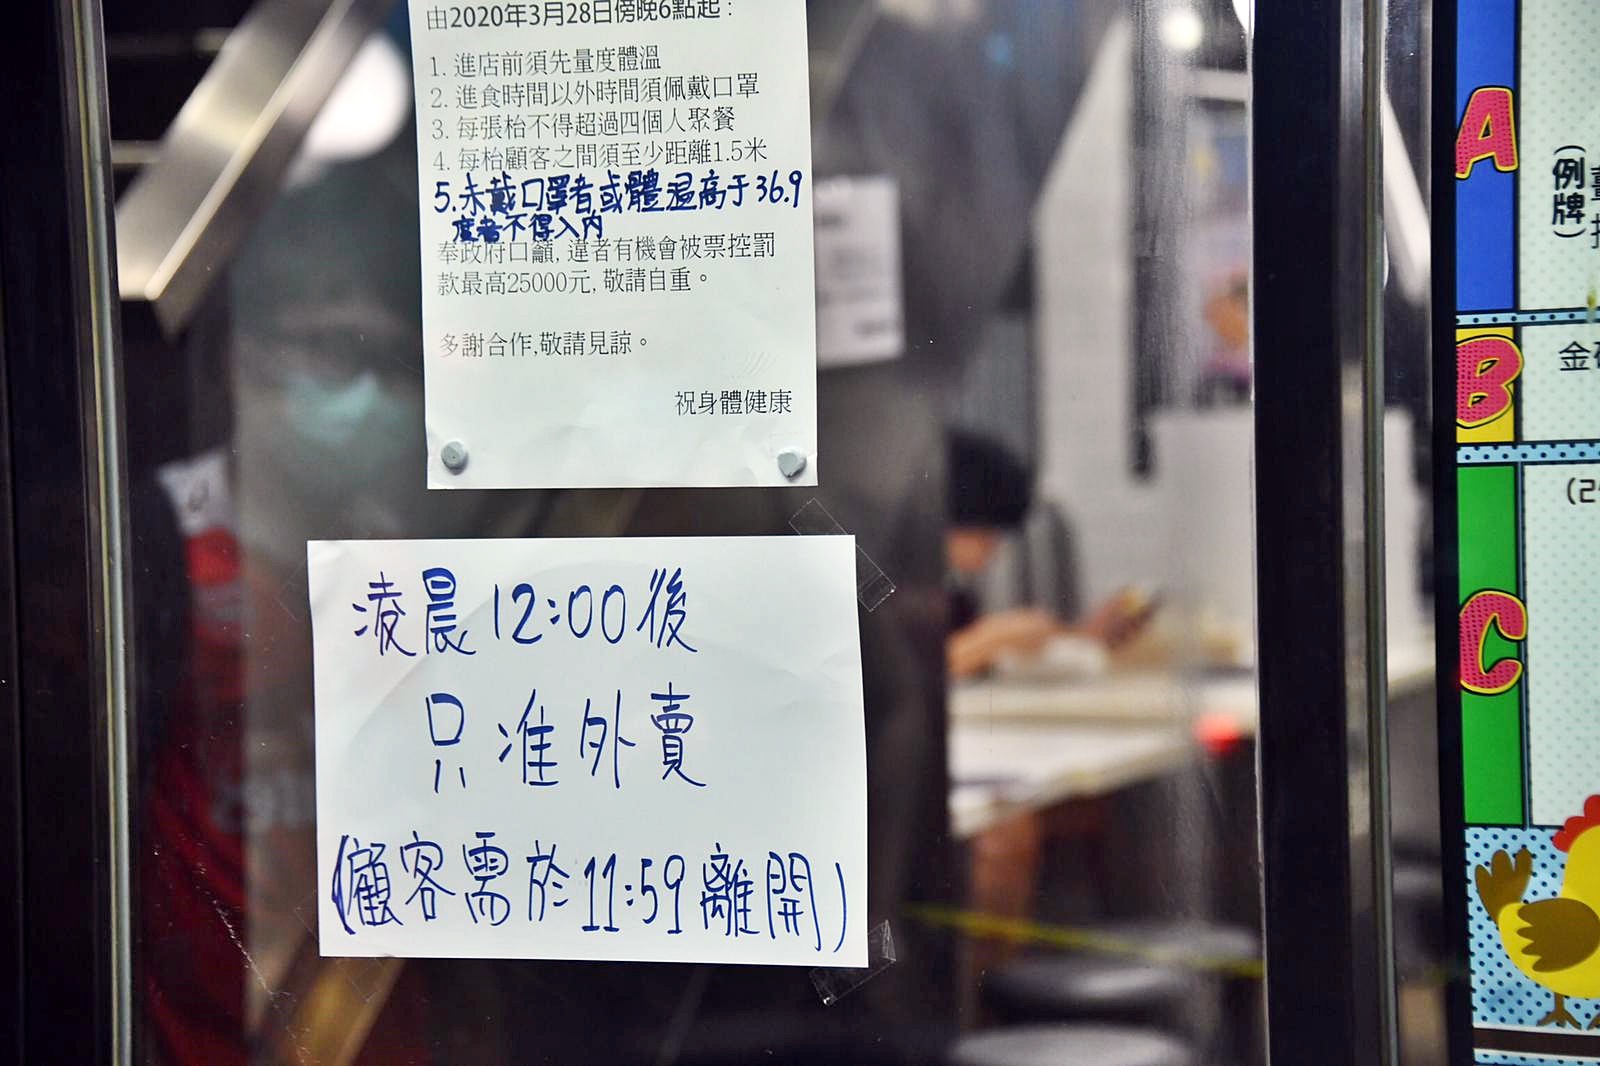 由2020年3月28日傍晚6點起：
1. 進店前須先量度體溫
2. 進食時間以外時間須佩戴口罩
3. 每張枱不得超過四個人聚餐
4. 每枱顧客之間須至少距離1.5米
5.未戴口罩者或體溫高于36.9
度者不得入內
奉政府口籲, 違者有機會被票控罰
款最高25000元, 敬請自重。
多謝合作,敬請見諒。
祝身體健康
凌晨12:00後
只准外賣
(顧客需於11:59離開)
A
(例牌)
B
金
C